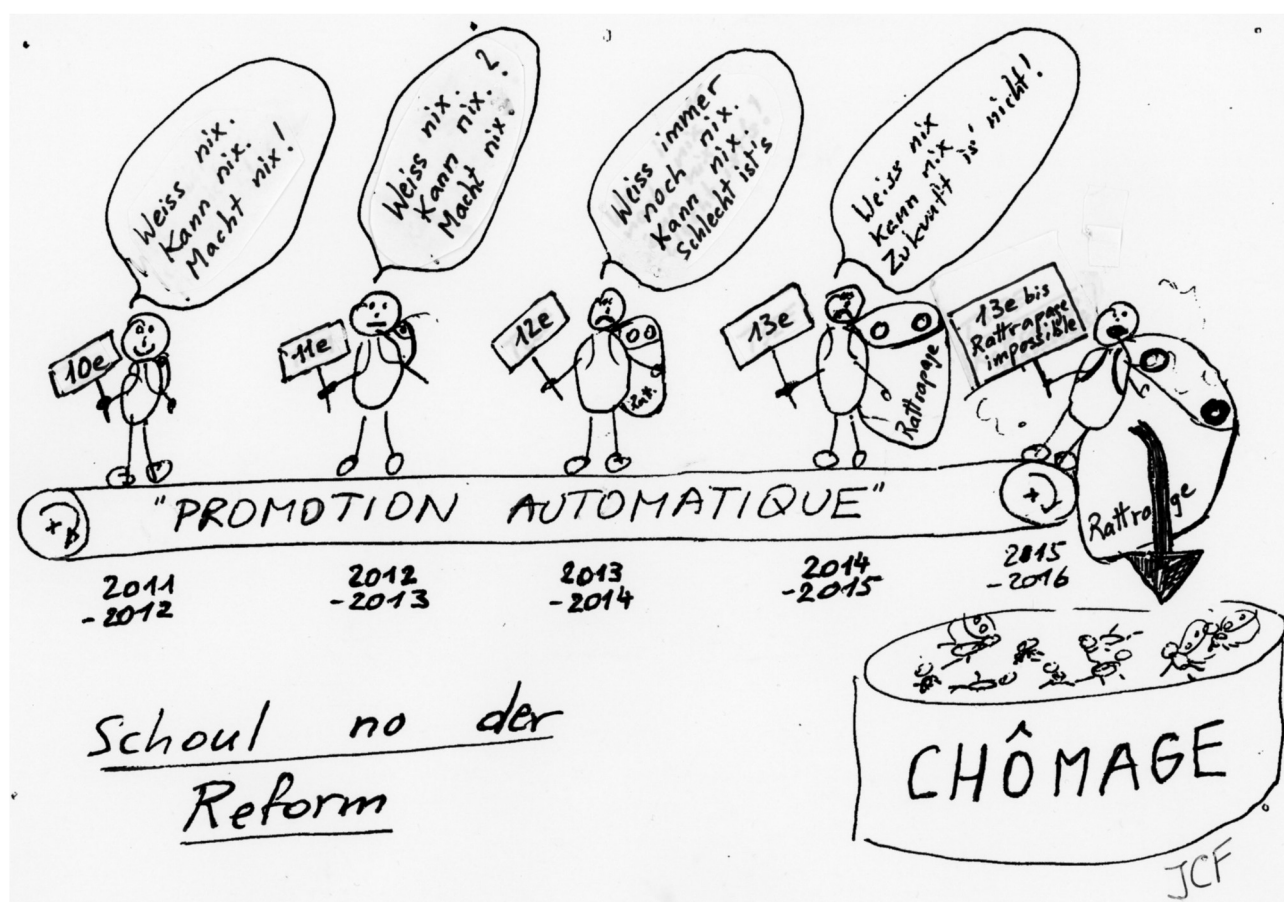 Weiss nix.
Kann nix.
Macht nix!
Weiss nix. ?
Kann nix.
Macht nix?
Weiss immer
noch nix.
Kann nix.
Schlecht ist's
Weiss nix
kann nix
Zukunft is' nicht!
10e
11e
12e
13e
13e bis
Rattrapage
impossible
Ratt.
Rattrapage
Rattrapage
"PROMOTION AUTOMATIQUE"
2011
-2012
2012
-2013
2013
-2014
2014
-2015
2015
-2016
Schoul no der
Reform
CHÔMAGE
JCF